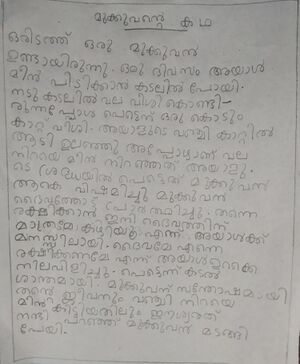 മുക്കുവന്റെ കഥ
ഒരിടത്ത് ഒരു മുക്കുവൻ
ഉണ്ടായിരുന്നു. ഒരു ദിവസം അയാൾ
മീൻ പിടിക്കാൻ കടലിൽ പോയി.
നടു കടലിൽ വല വീശി കൊണ്ടി-
രുന്നപ്പോൾ പെട്ടെന്ന് ഒരു കൊടും
കാറ്റ് വീശി. അയാളുടെ വഞ്ചി കാറ്റിൽ
ആടി ഉലഞ്ഞു അപ്പോഴാണ് വല
നിറയെ മീൻ നിറഞ്ഞത് അയാളു-
ടെ ശ്രദ്ധയിൽ പെട്ടെത് മുക്കുവന്
ആകെ വിഷമിച്ചു മുക്കുവൻ
ദൈവത്തോട് പ്രാർത്ഥിച്ചു. തന്നെ
രക്ഷിക്കാൻ ഇനി ദൈവത്തിന്
മാത്രമേ കഴിയൂ എന്ന് അയാൾക്ക്
മനസ്സിലായി. ദൈവമേ എന്നെ
രക്ഷിക്കണമേ എന്ന് അയാൾ ഉറക്കെ
നിലവിളിച്ചു. പെട്ടെന്ന് കടൽ
ശാന്തമായി. മുക്കുവന് സന്തോഷമായി
തന്റെ ജീവനും വഞ്ചി നിറയെ
മീനും കിട്ടിയതിലും ഈശ്വരന്
നന്ദി പറഞ്ഞ് മുക്കുവൻ മടങ്ങി
പോയി.